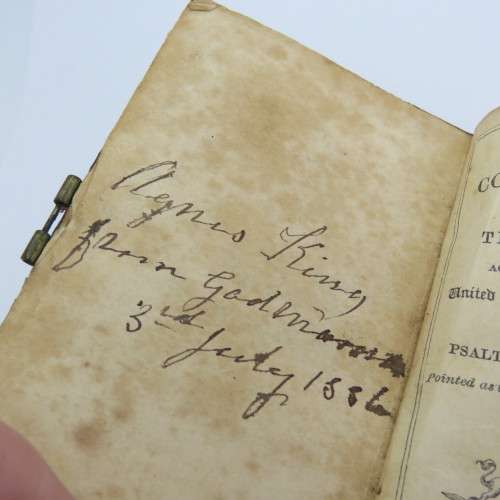 Agnes King
from God Mamma
3rd
July 1886
CO
T
United
PSALT
Pointed as